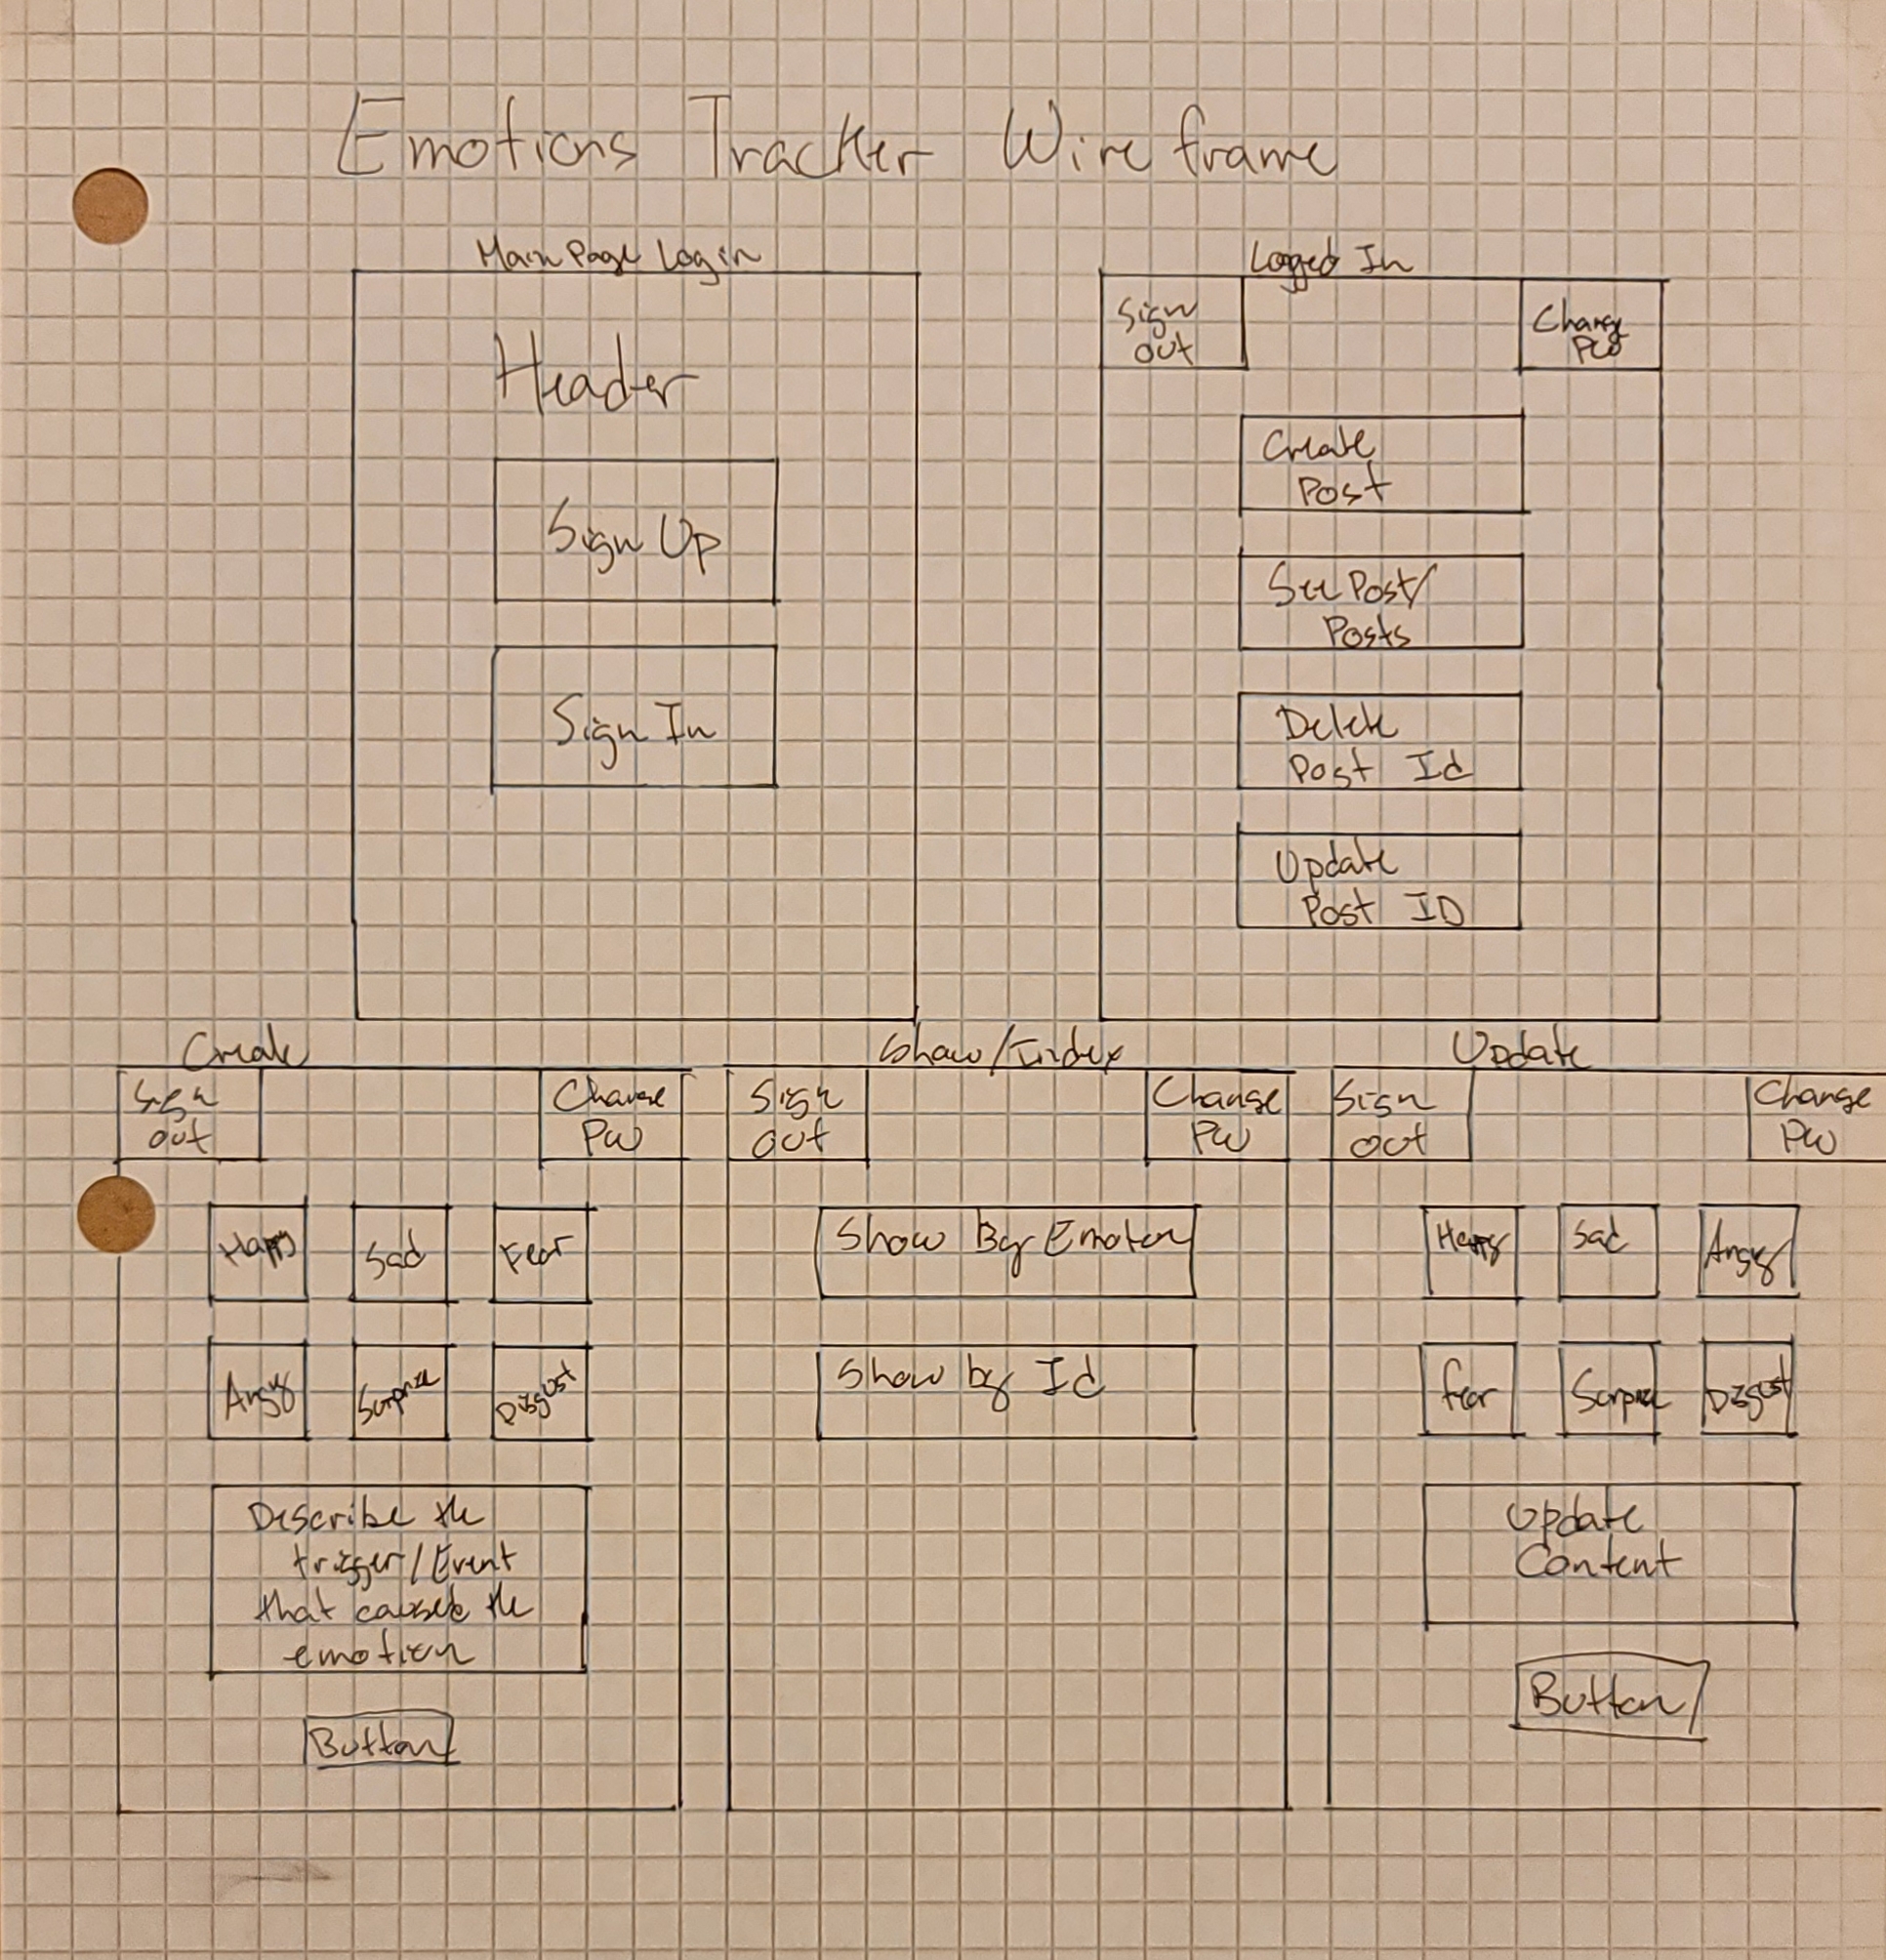 Emotions Tracker Wireframe
Main Page Login
Header
Sign Up
Sign In
Logged In
Sign
out
Change
PW
Create
Post
See Post/
Posts
Delete
Post Id
Update
Post ID
Create
Sign
out
Change
PW
Happy
Sad
Fear
Angry
Surprise
Disgust
Describe the
trigger/Event
that caused the
emotion
Button
Show/Index
Sign
out
Change
PW
Show By Emotion
Show by Id
Update
Sign
out
Change
PW
Happy
Sad
Angry
Fear
Surprise
Disgust
Update
Content
Button